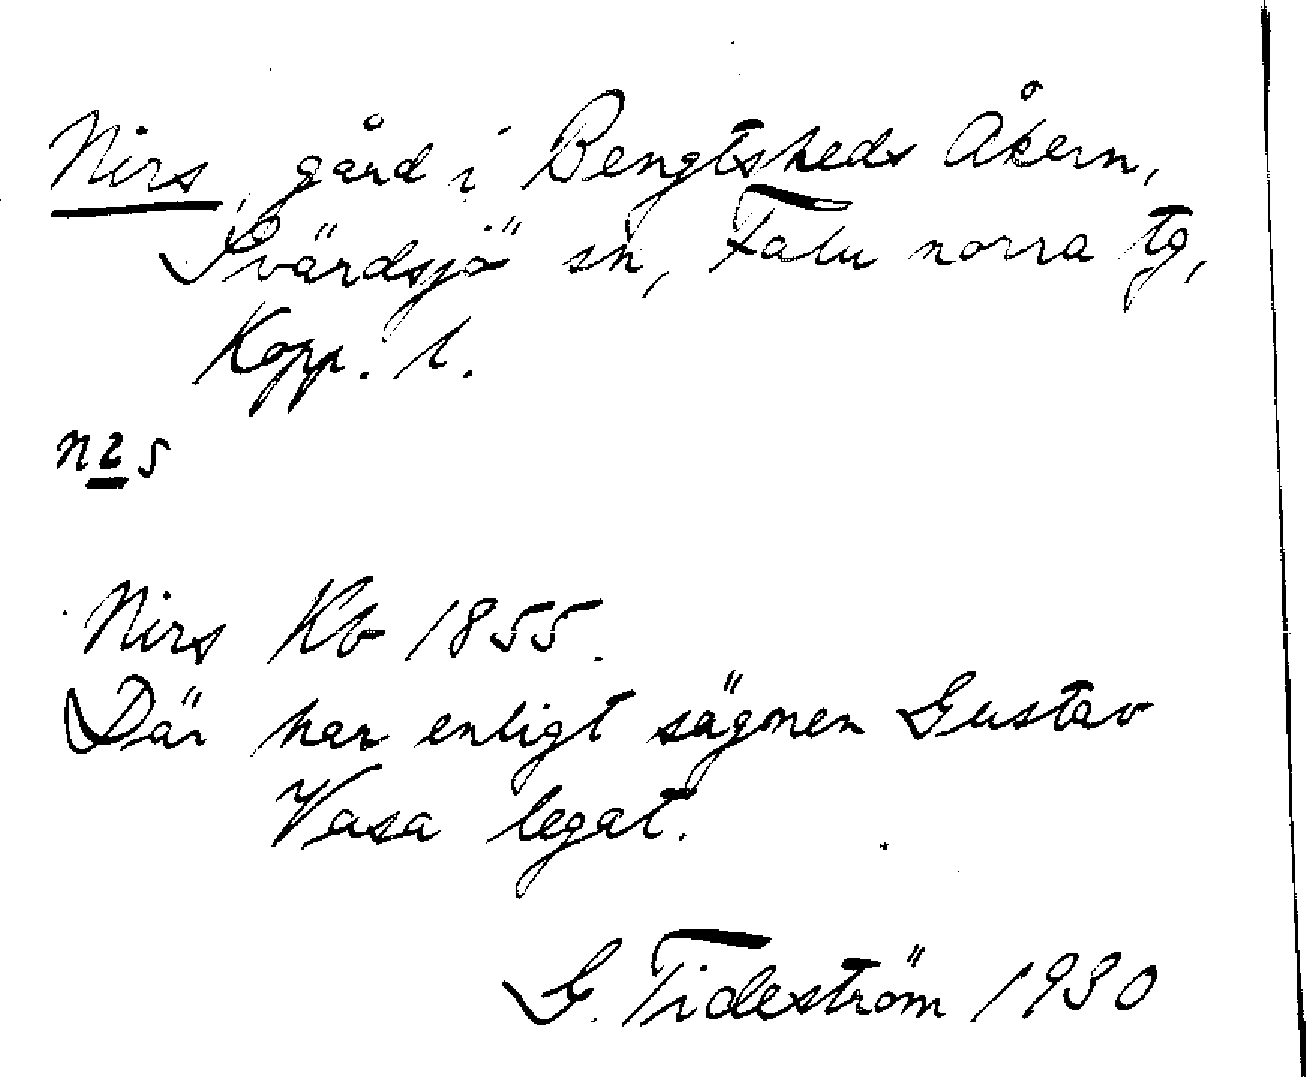 Nirs, gård i Bengtsheds Åkern,
Svärdsjö sn, Falu norra tg,
Kopp. l.
Nirs Kb 1855.
Där har enligt sägnen Gustav
Vasa legat.
G. Tideström 1930